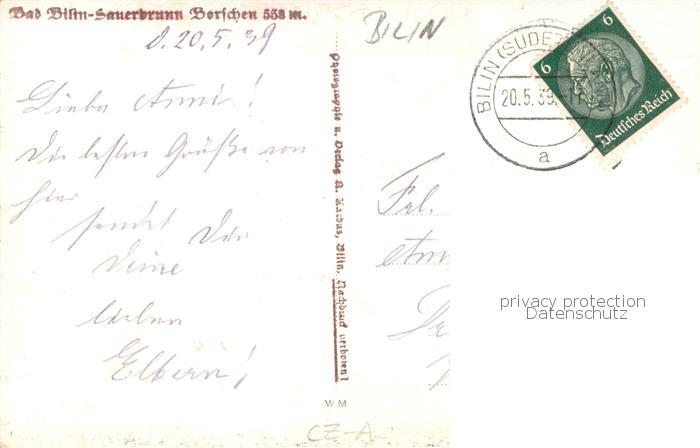 Bad Bilin-Sauerbrunn Borschen 558 m.
d. 20.5.39
Liebe Anni!
Die besten Grüße von
hier
sendet Dir
Deine
lieben
Eltern!
Photographie u. Verlag A. Karbus, Bilin. Nachdruck verboten!
WM
CZ-A
BILIN
BILIN (SUDE
20.5.39.-11
a
6
6
Deutsches Reich
Frl.
Ann
privacy protection
Datenschutz